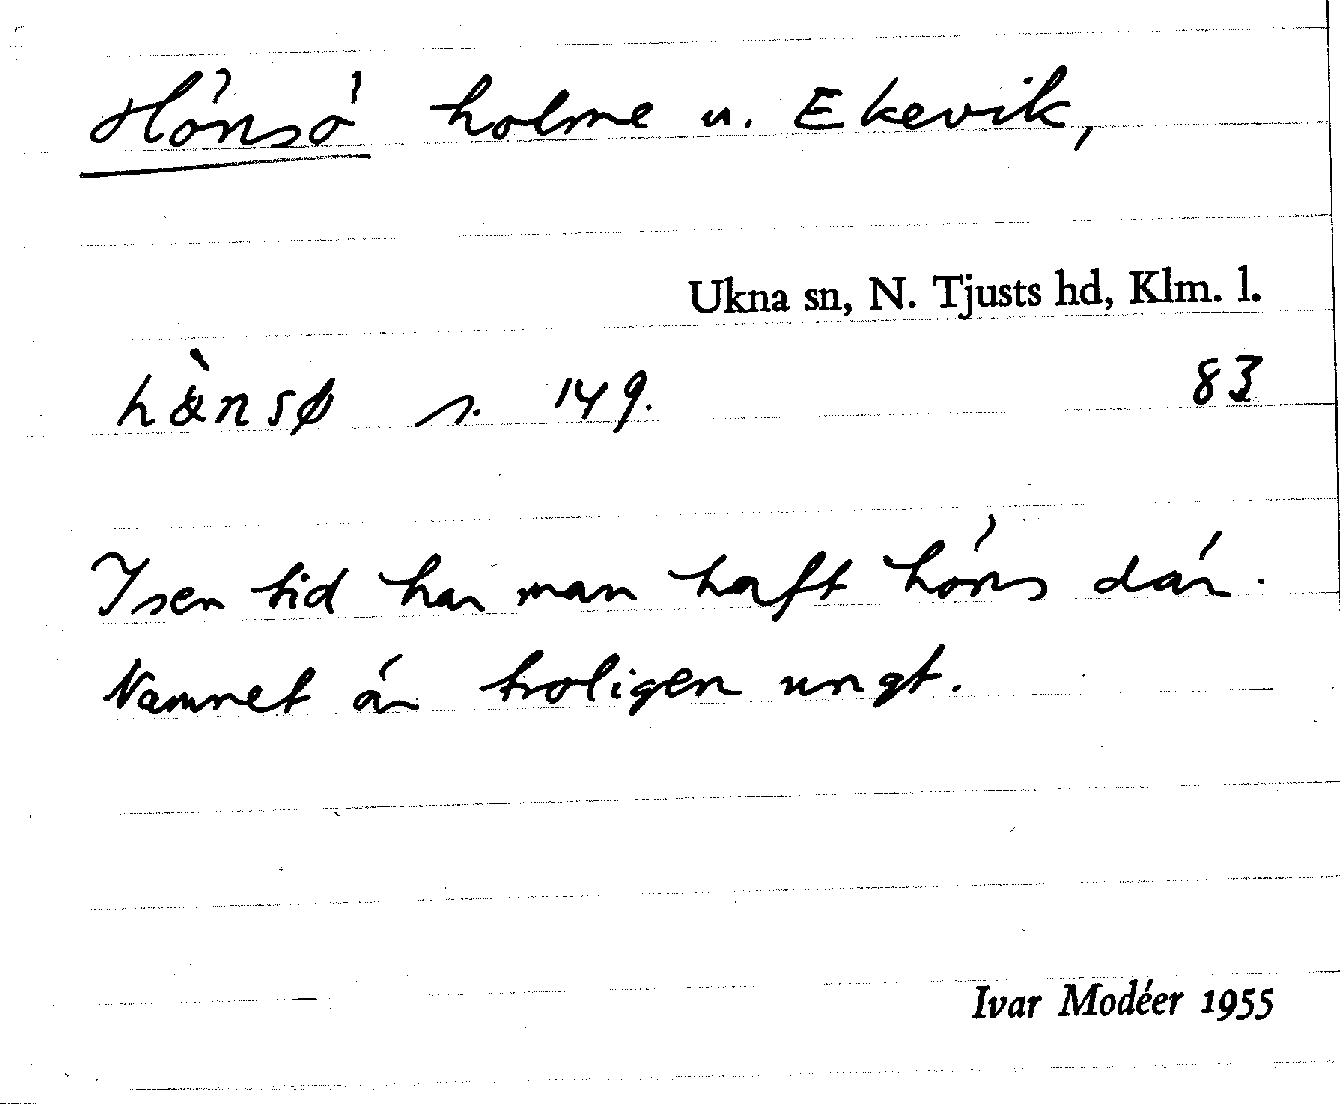 Hönsö holme u. Ekevik,
Ukna sn, N. Tjusts hd, Klm. l.
hæ̀nsø s. 149. 83
I sen tid har man haft höns där.
Namnet är troligen ungt.
Ivar Modéer 1955